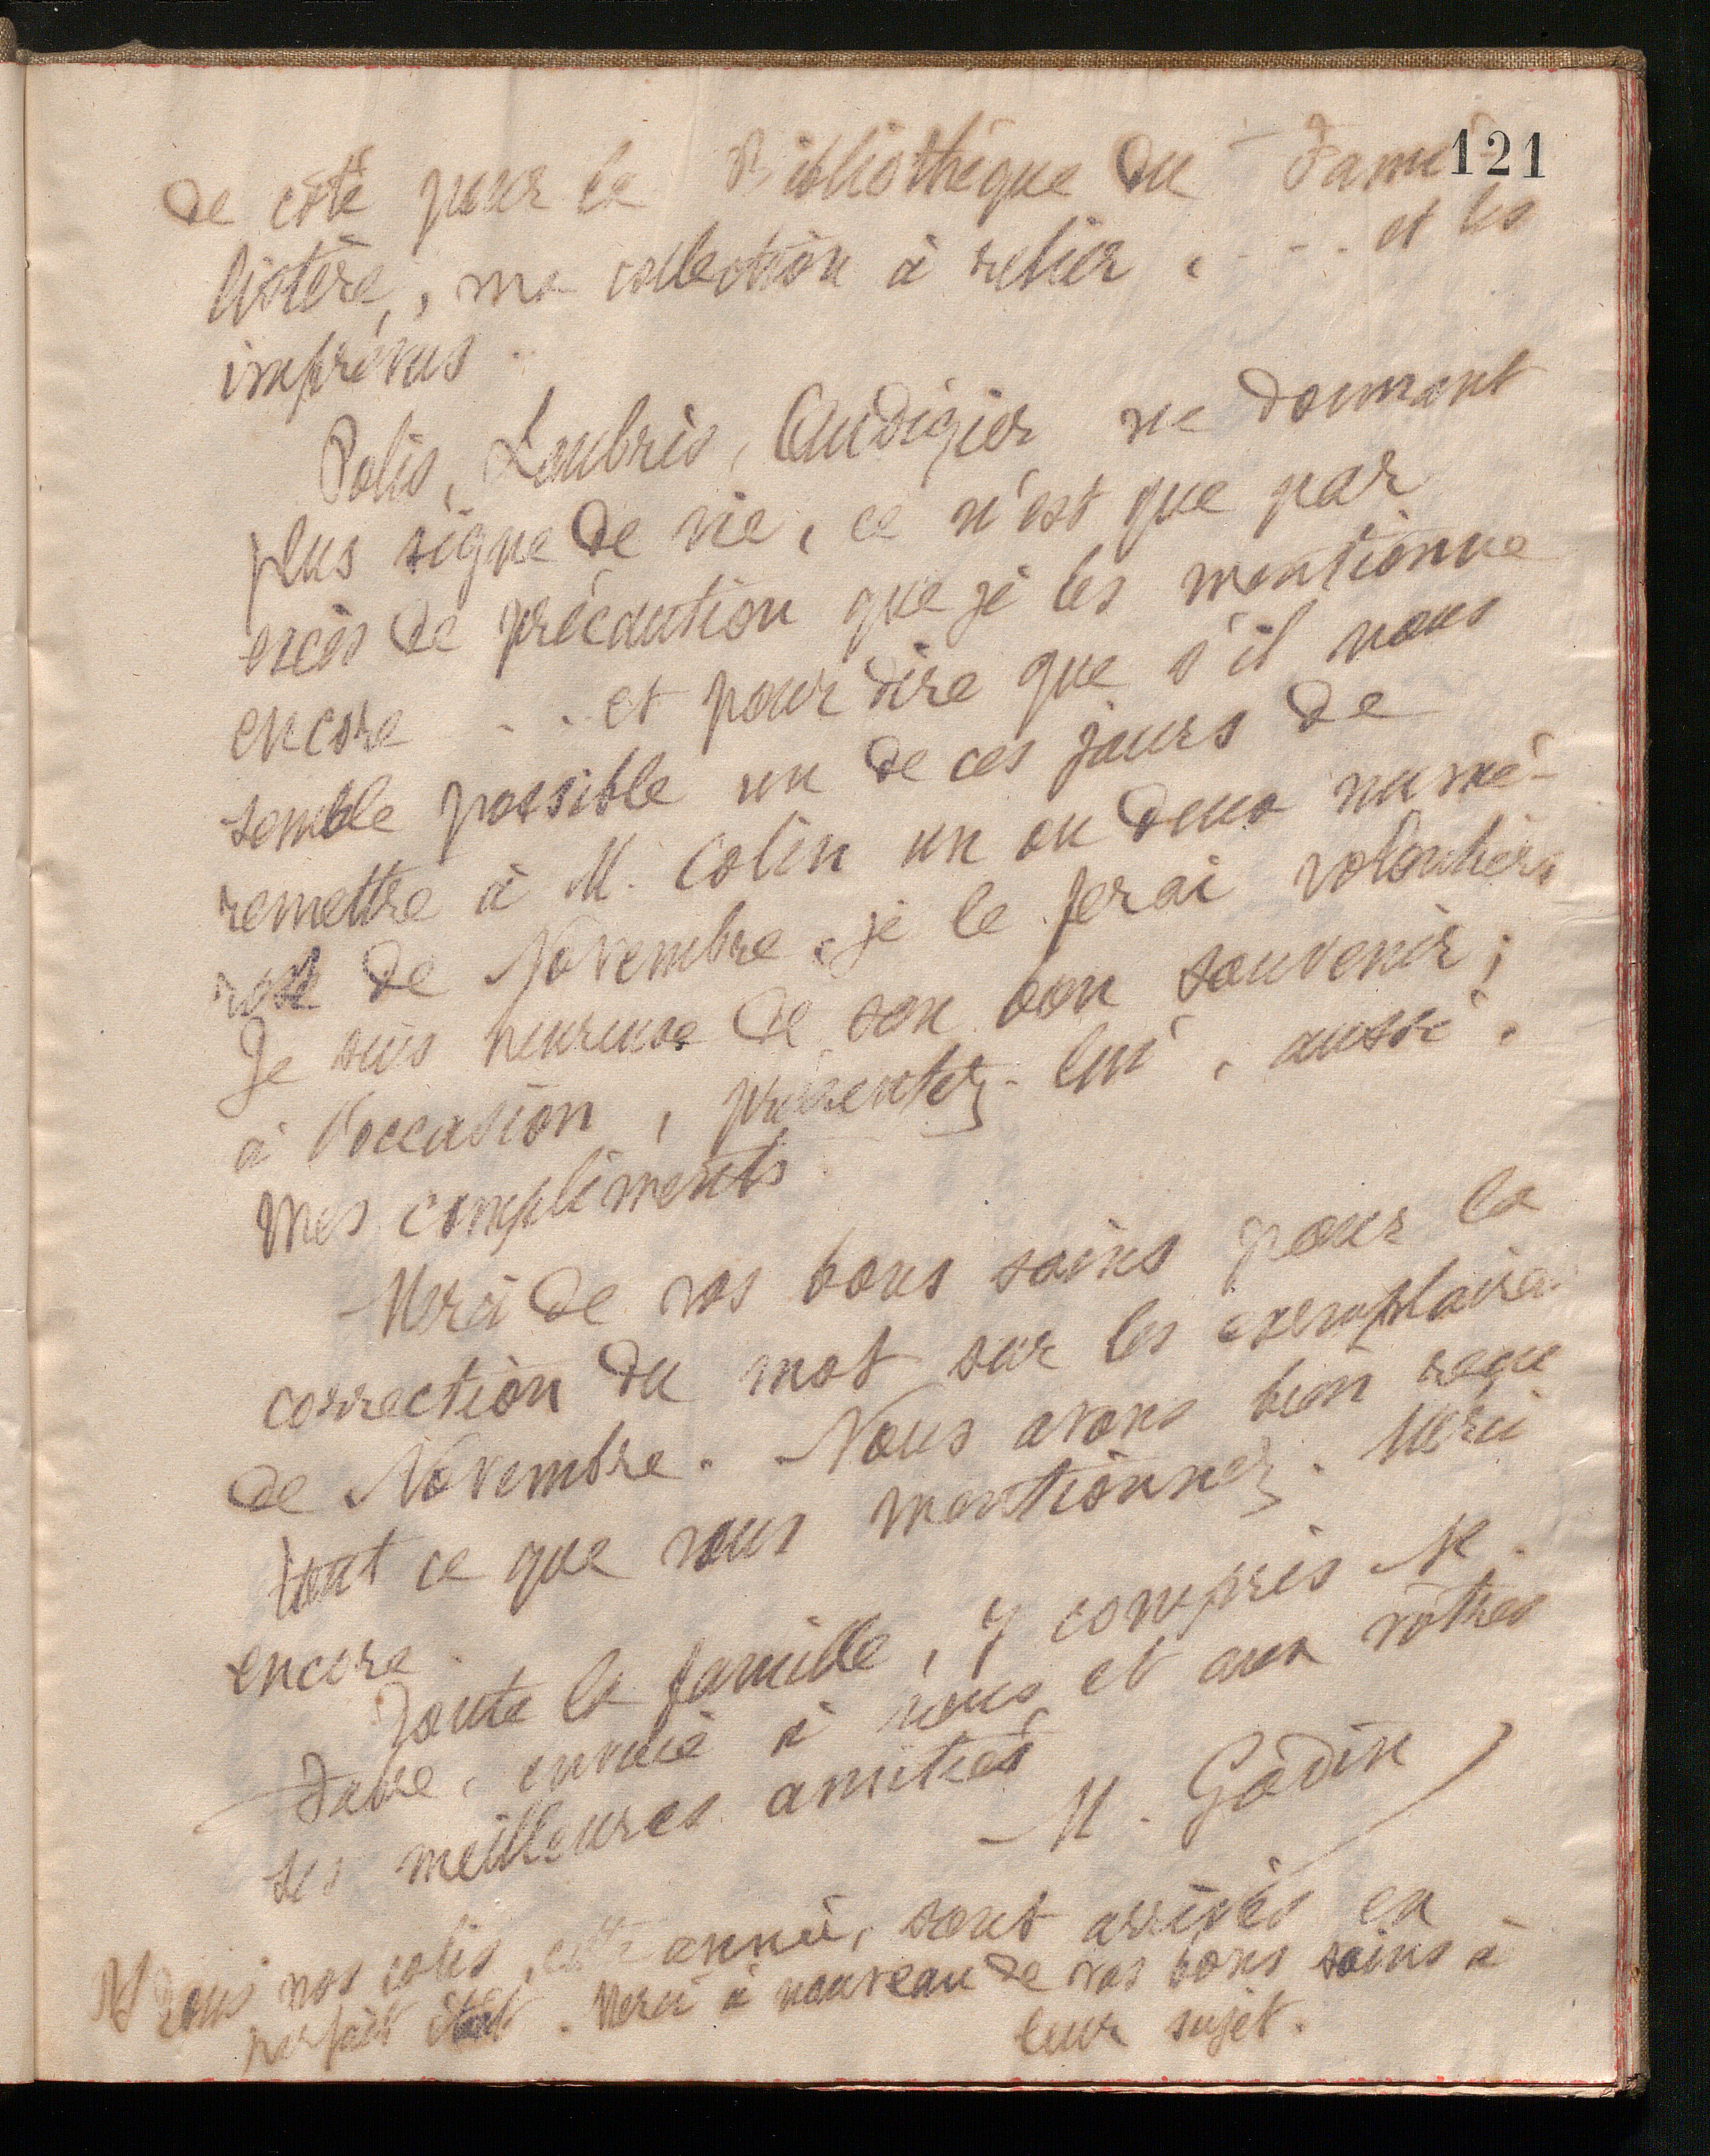 121
de côté pour la Bibliothèque du Fami-
listère, ma collection à relier, . . . et les
imprévus.
Polis, Loubris, Audigier ne donnant
plus signe de vie, ce n'est que par
excès de précaution que je les mentionne
encore . . . et pour dire que s'il vous
semble possible un de ces jours de
remettre à M. Colin un ou deux numé-
ros de Novembre, je le ferai volontiers
Je suis heureuse de son bon souvenir ;
à l'occasion, présentez-lui, aussi,
mes compliments.
Merci de vos bons soins pour la
correction du mot sur les exemplaires
de Novembre. Nous avons bien reçu
tout ce que vous mentionnez. Merci
encore.
Toute la famille, y compris M.
Fabre, envoie à vous et aux vôtres
ses meilleures amitiés
M. Godin
PS Tous nos colis, cette année, sont arrivés en
parfait état. Merci à nouveau de vos bons soins à
leur sujet.